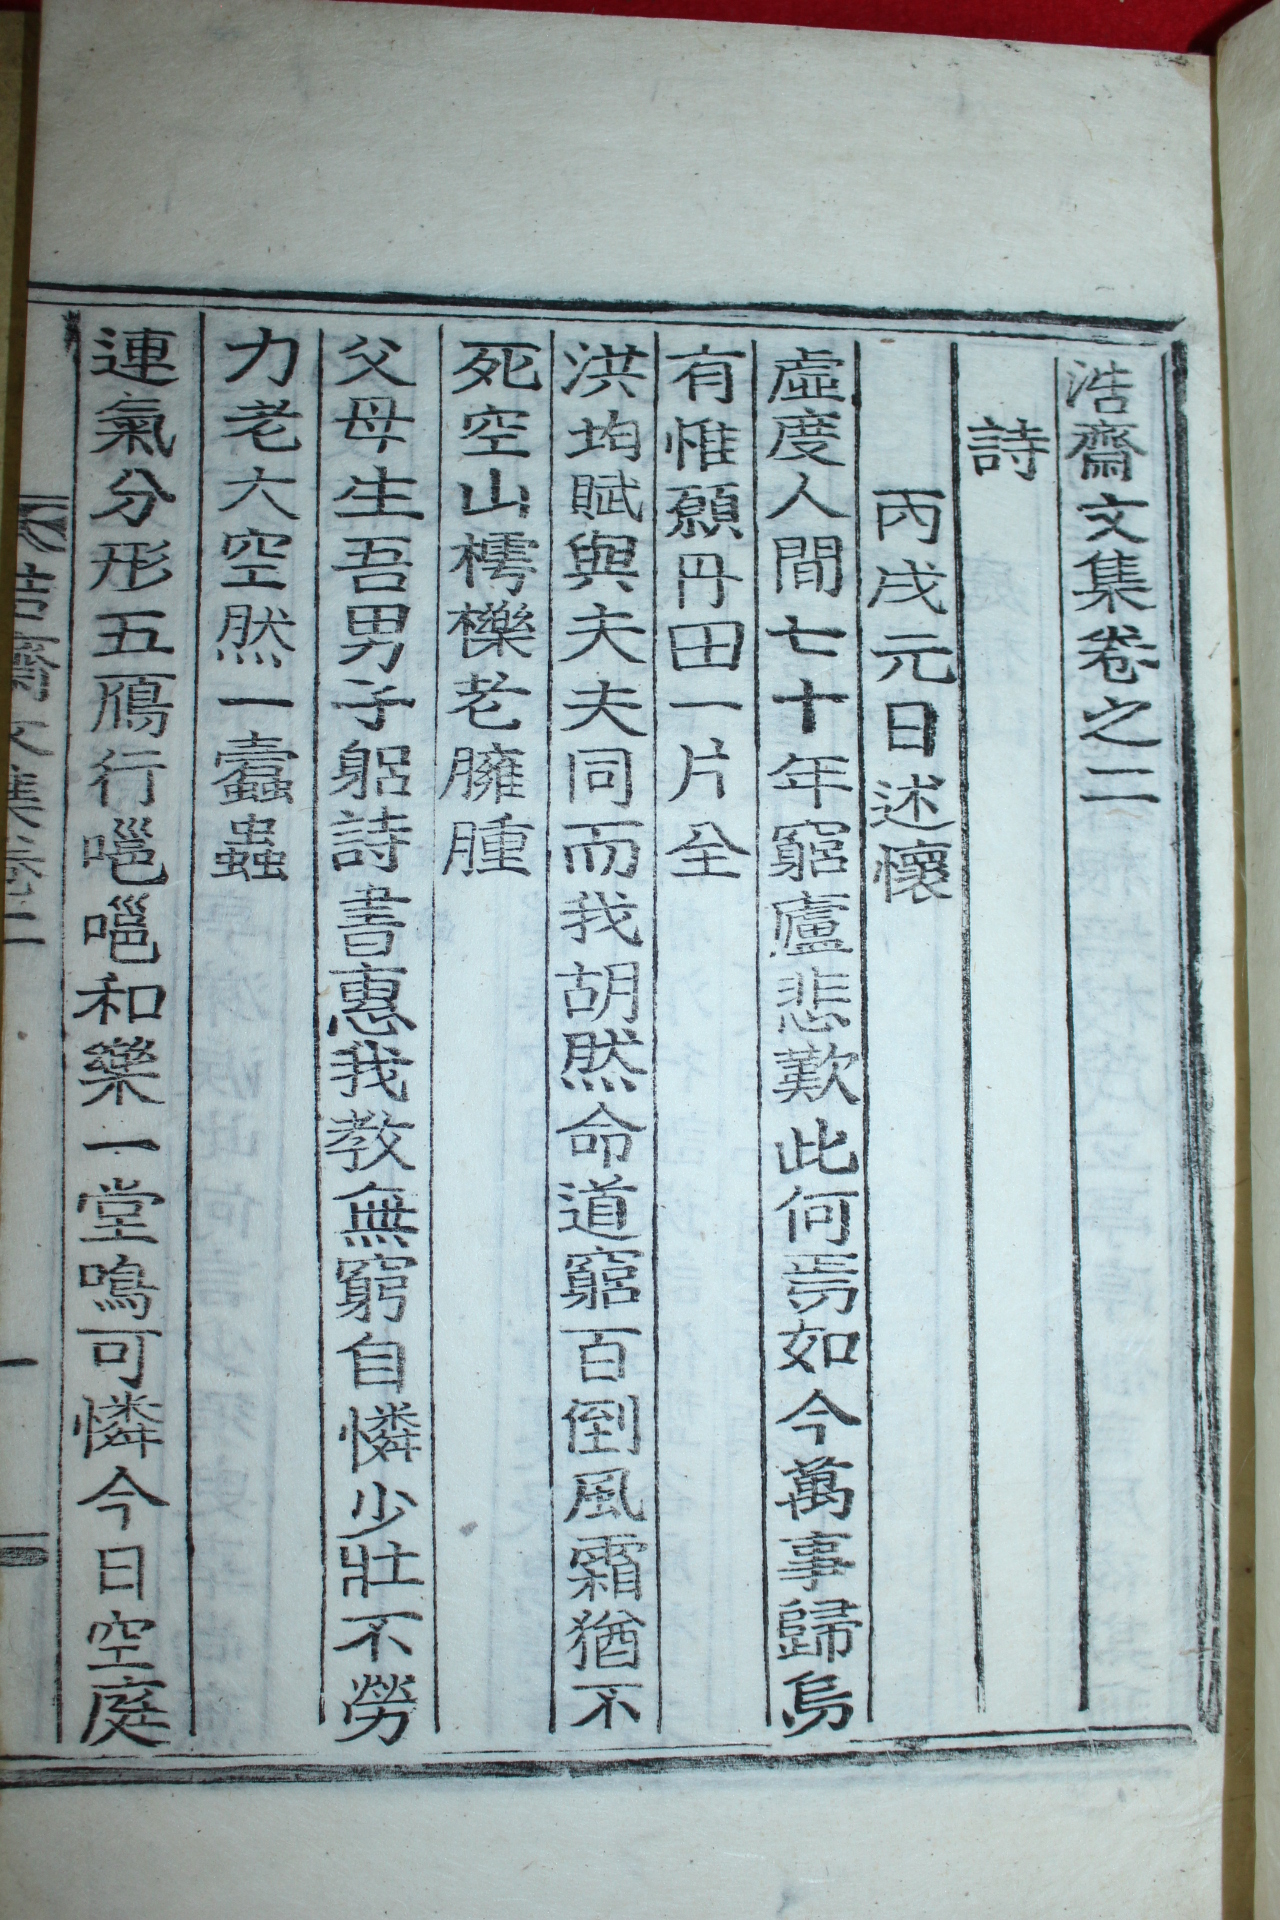 浩齋文集卷之二
詩
丙戌元日述懷
虛度人間七十年窮廬悲歎此何焉如今萬事歸烏
有惟願丹田一片全
洪均賦與夫夫同而我胡然命道窮百倒風霜猶不
死空山樗櫟老臃腫
父母生吾男子躬詩書惠我教無窮自憐少壯不勞
力老大空然一蠹蟲
連氣分形五鴈行嗈嗈和樂一堂鳴可憐今日空庭
浩齋文集卷二
一